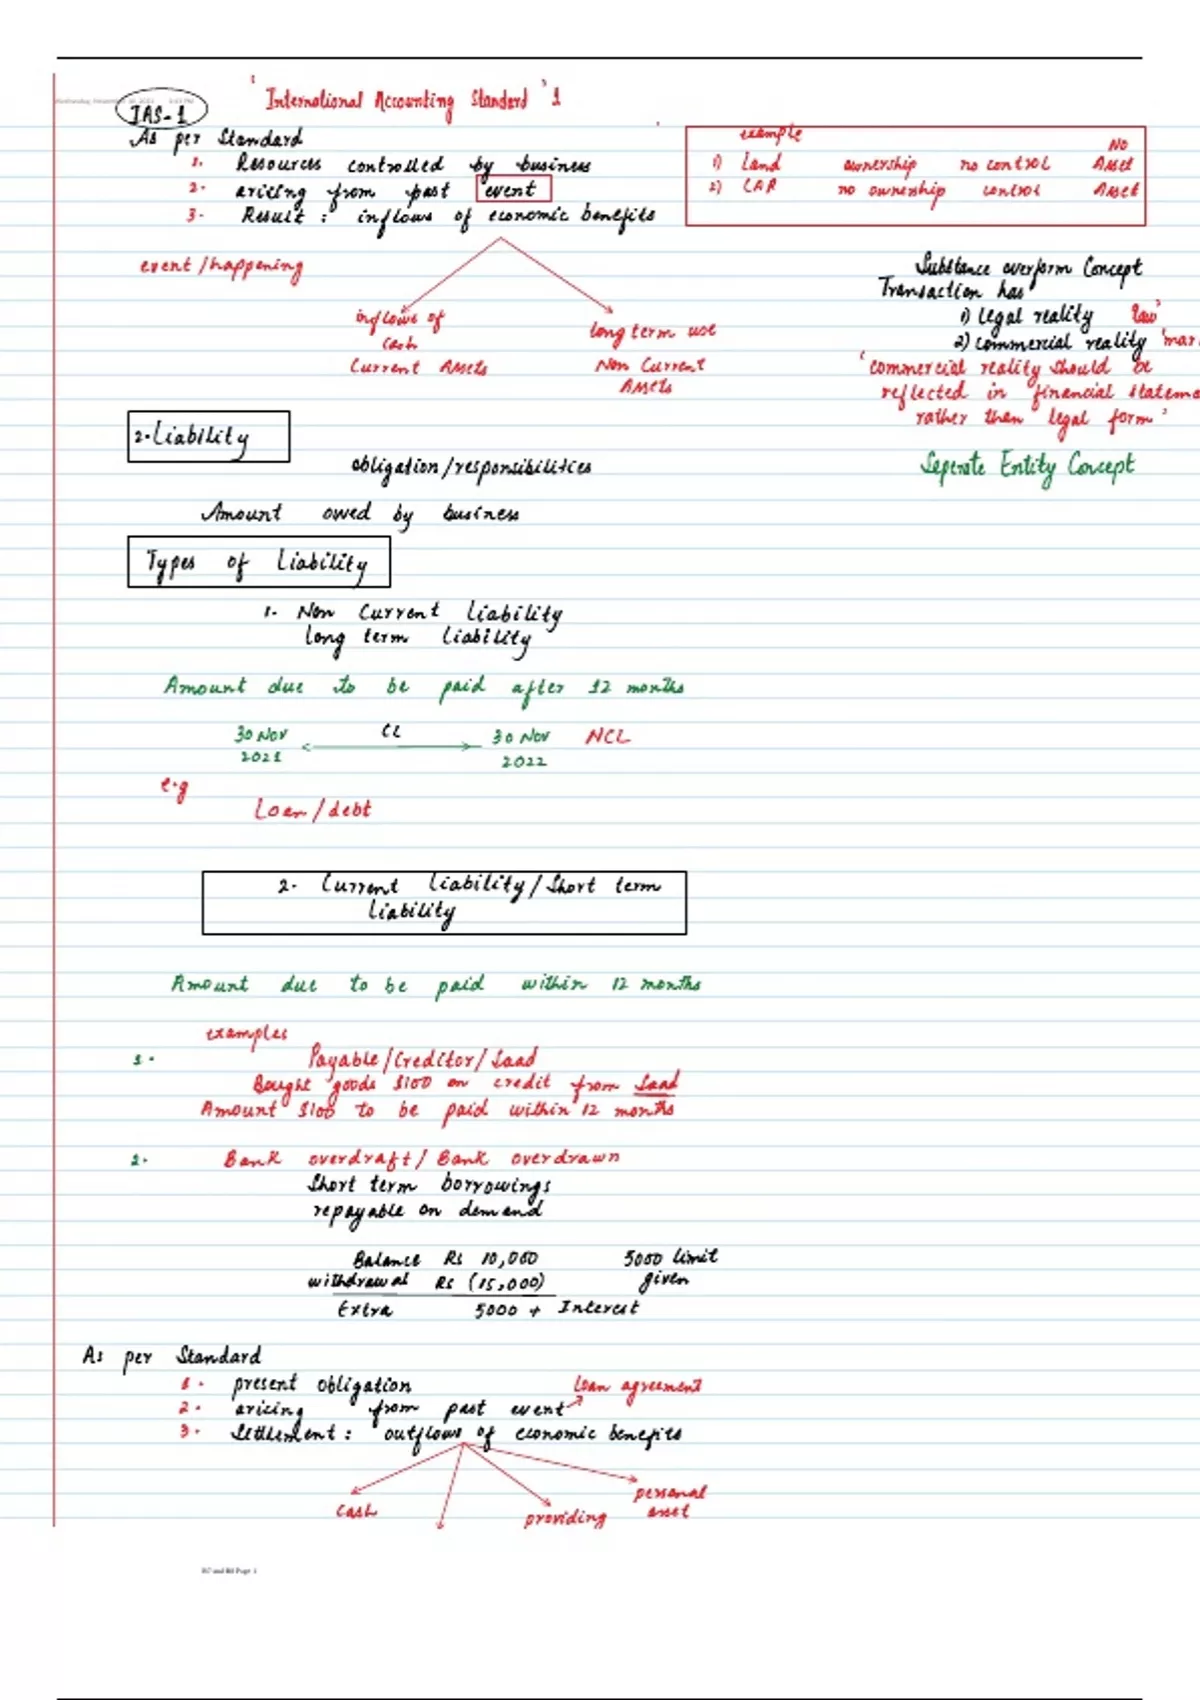 IAS-1
'International Accounting Standard' 1
As per Standard
1. Resources controlled by business
2. arising from past event
3. Result : inflows of economic benefits
example
1) Land ownership no control No Asset
2) CAR no ownership control Asset
event/happening
inflows of cash
Current Assets
long term use
Non Current Assets
Substance overform Concept
Transaction has
1) legal reality 'law'
2) commercial reality 'mar
'commercial reality should be
reflected in financial stateme
rather than legal form'
Seperate Entity Concept
2. Liability
obligation/responsibilities
Amount owed by business
Types of Liability
1. Non Current Liability
long term liability
Amount due to be paid after 12 months
30 Nov 2021
CL
30 Nov 2022
NCL
e.g
Loan/debt
2. Current liability/Short term
liability
Amount due to be paid within 12 months
examples
1. Payable/Creditor/Saad
Bought goods $100 on credit from Saad
Amount $100 to be paid within 12 months
2. Bank overdraft/Bank overdrawn
Short term borrowings
repayable on demand
Balance Rs 10,000 5000 limit
withdrawal Rs (15,000) given
Extra 5000 + Interest
As per Standard
1. present obligation
loan agreement
2. arising from past event
3. Settlement : outflows of economic benefits
cash
providing
personal asset
B7 and B8 Page 1